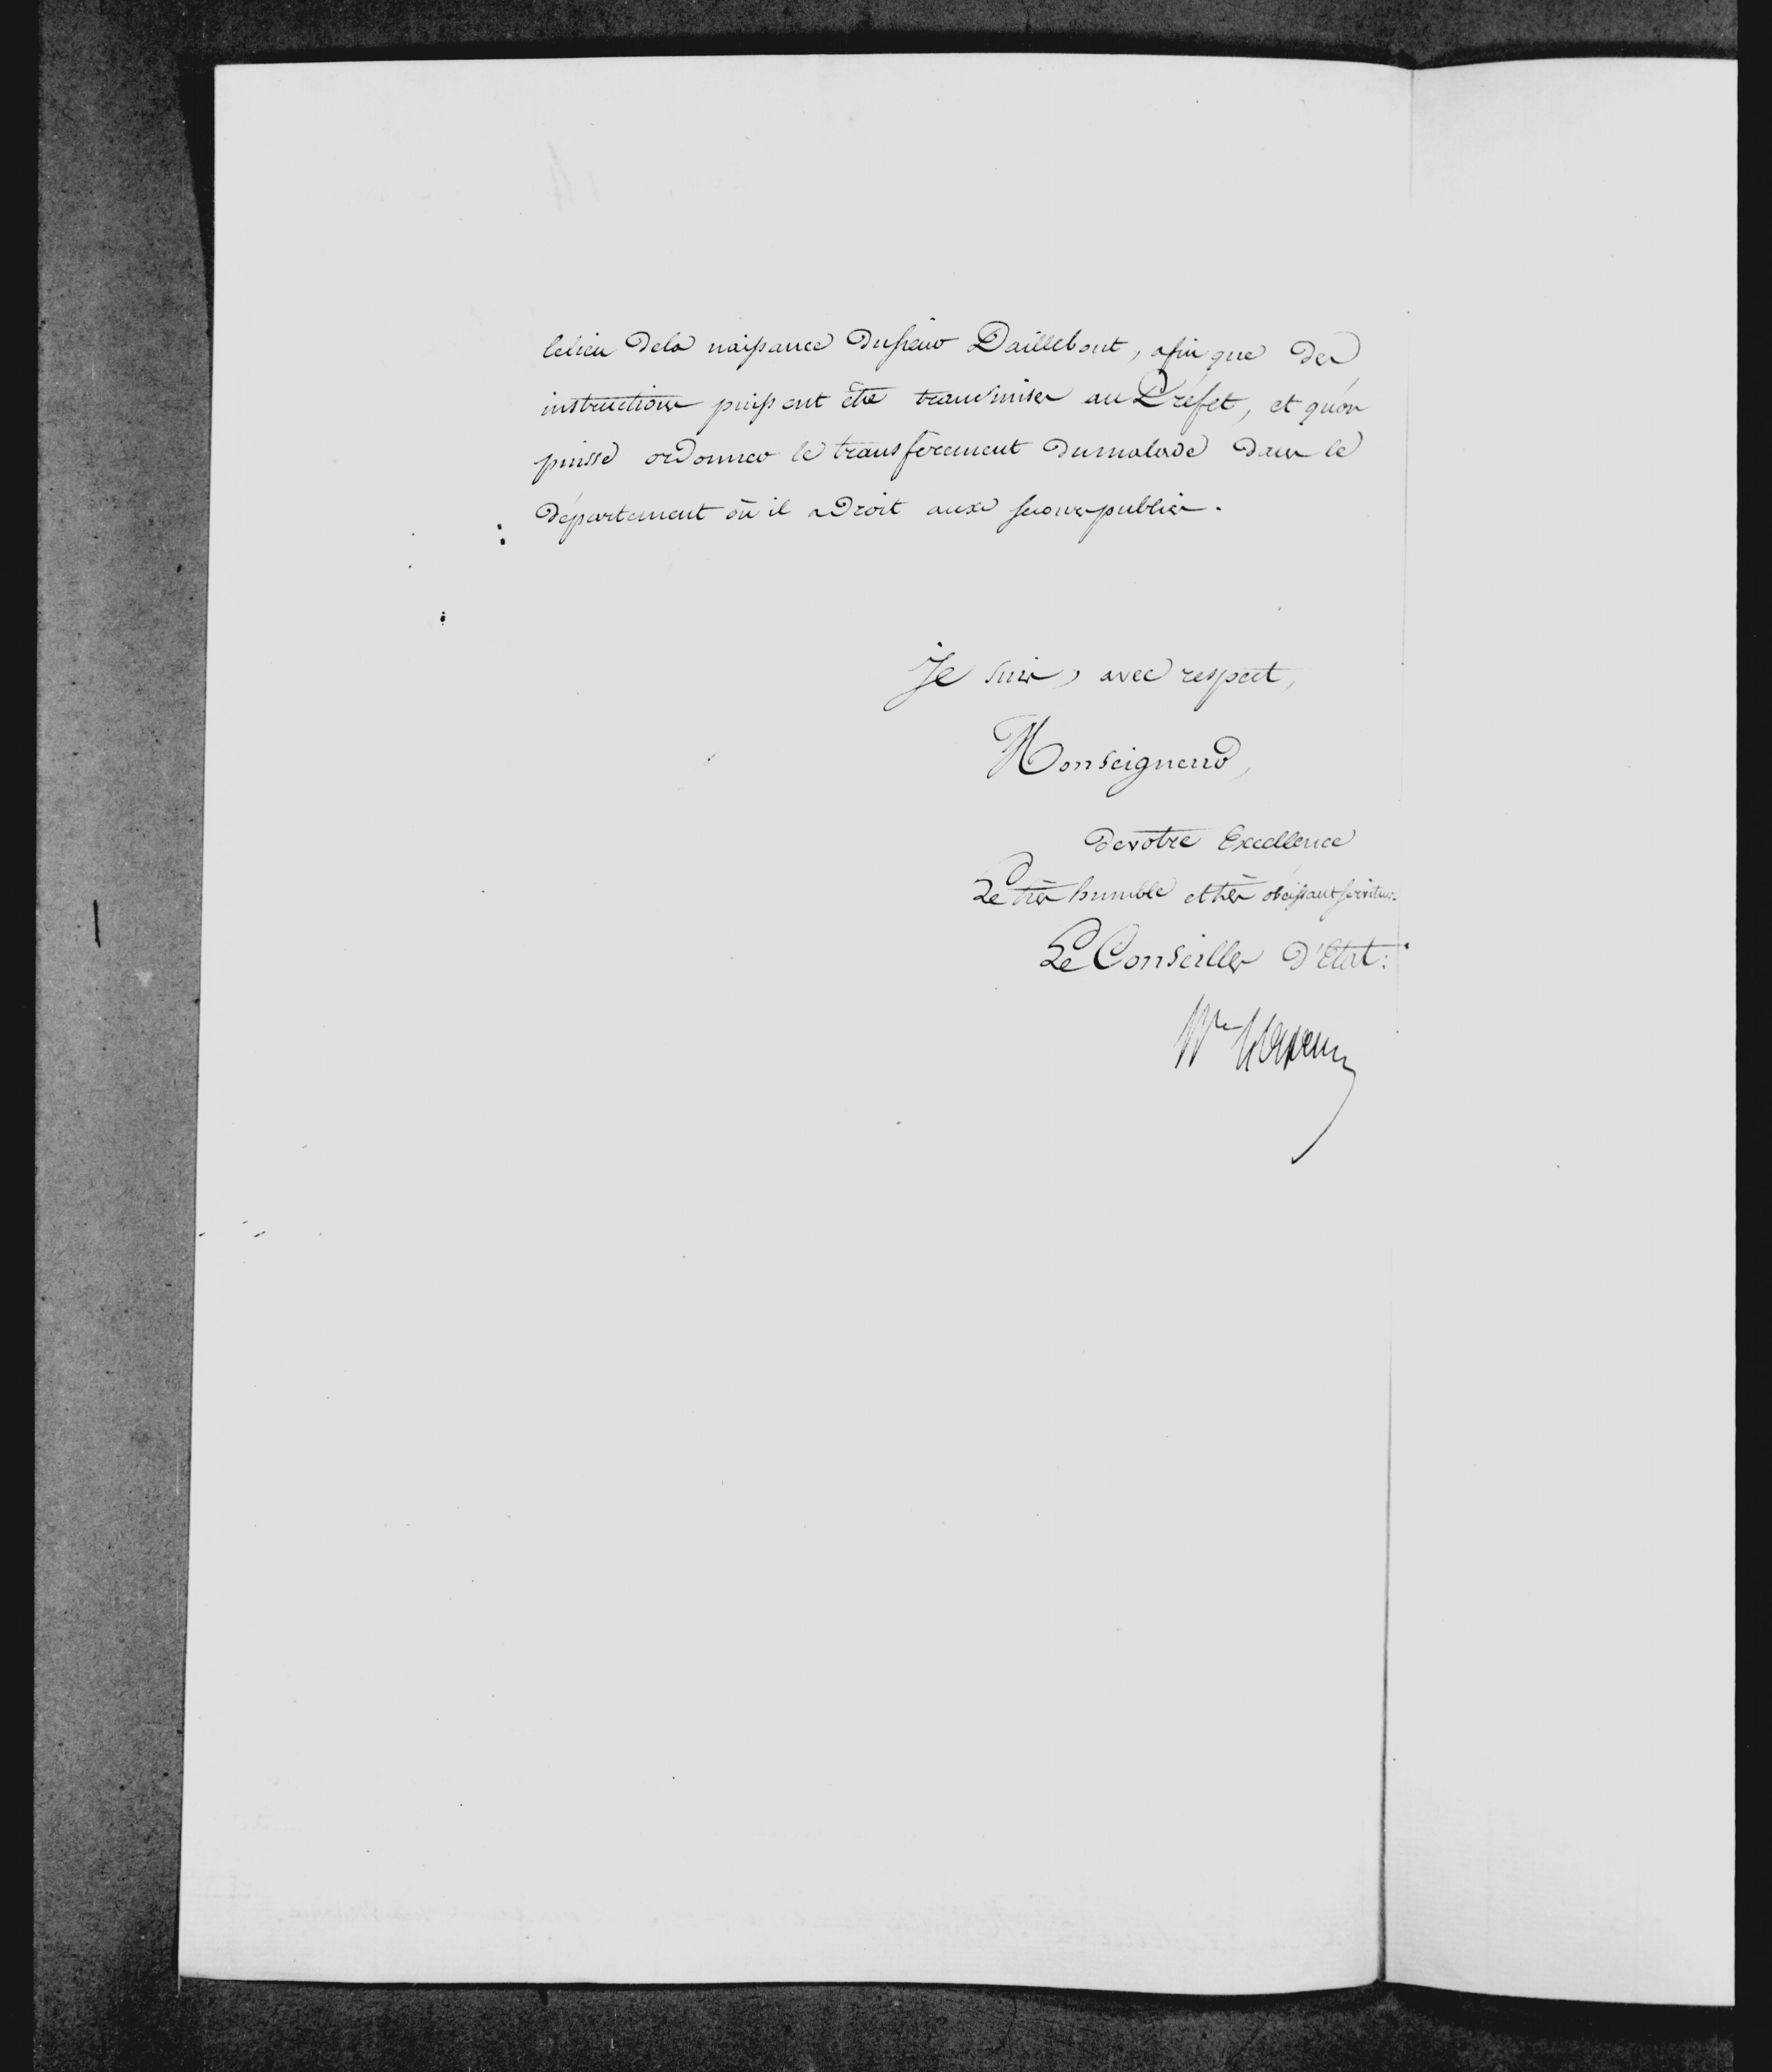 le lieu de la naissance du sieur Daillebout, afin que des
instructions puissent être transmises au Préfet, et qu'on
puisse ordonner le transfèrement du malade dans le
département où il a droit aux secours publics.
Je suis, avec respect,
Monseigneur,
de votre Excellence
Le très humble et très obéissant serviteur.
Le Conseiller d'Etat: